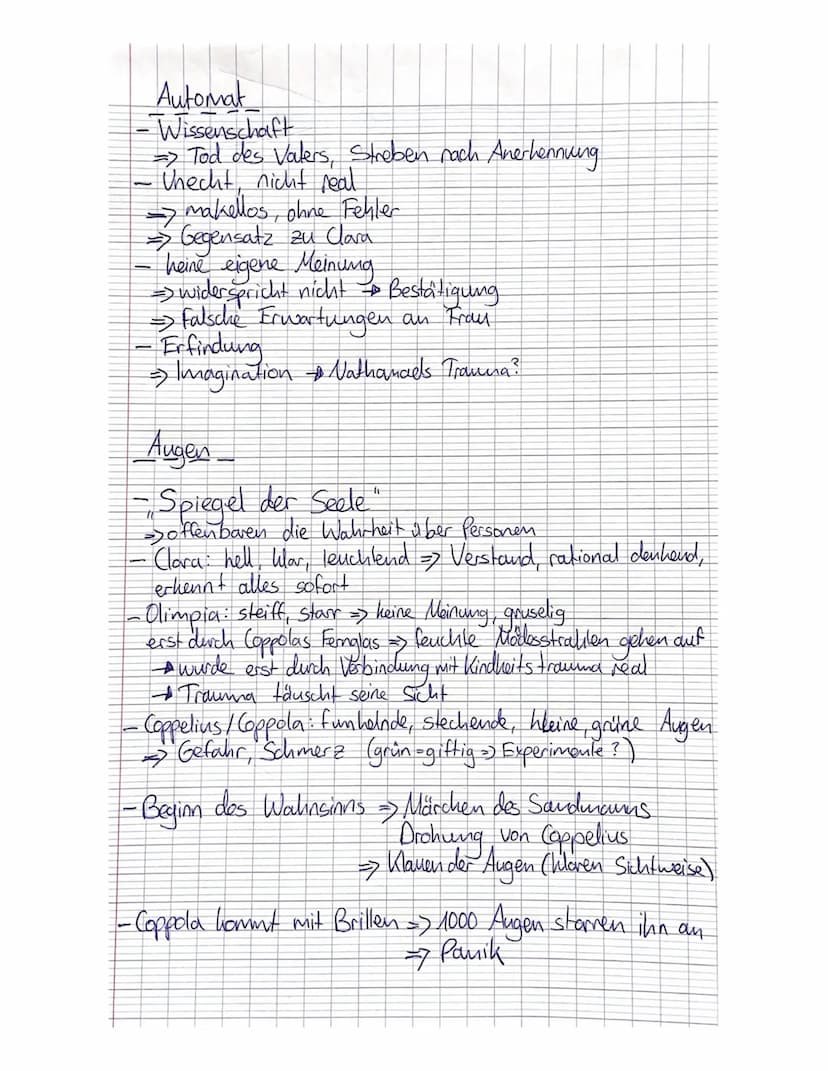 Automat
- Wissenschaft
=> Tod des Vaters, Streben nach Anerkennung
- Unecht, nicht real
=> makellos, ohne Fehler
=> Gegensatz zu Clara
- keine eigene Meinung
=> widerspricht nicht → Bestätigung
=> falsche Erwartungen an Frau
- Erfindung
=> Imagination → Nathanaels Trauma?
Augen
- „Spiegel der Seele"
=> offenbaren die Wahrheit über Personen
- Clara: hell, klar, leuchtend => Verstand, rational denkend,
erkennt alles sofort
- Olimpia: steiff, starr => keine Meinung, gruselig
erst durch Coppolas Fernglas => feuchte Modesstrahlen gehen auf
→ wurde erst durch Verbindung mit Kindheitstrauma real
→ Trauma täuscht seine Sicht
- Coppelius/Coppola: funkelnde, stechende, kleine, grüne Augen
=> Gefahr, Schmerz (grün=giftig => Experimente?)
- Beginn des Wahnsinns => Märchen des Sandmanns
Drohung von Coppelius
=> Klauen der Augen (klaren Sichtweise)
- Coppola kommt mit Brillen => 1000 Augen starren ihn an
=> Panik